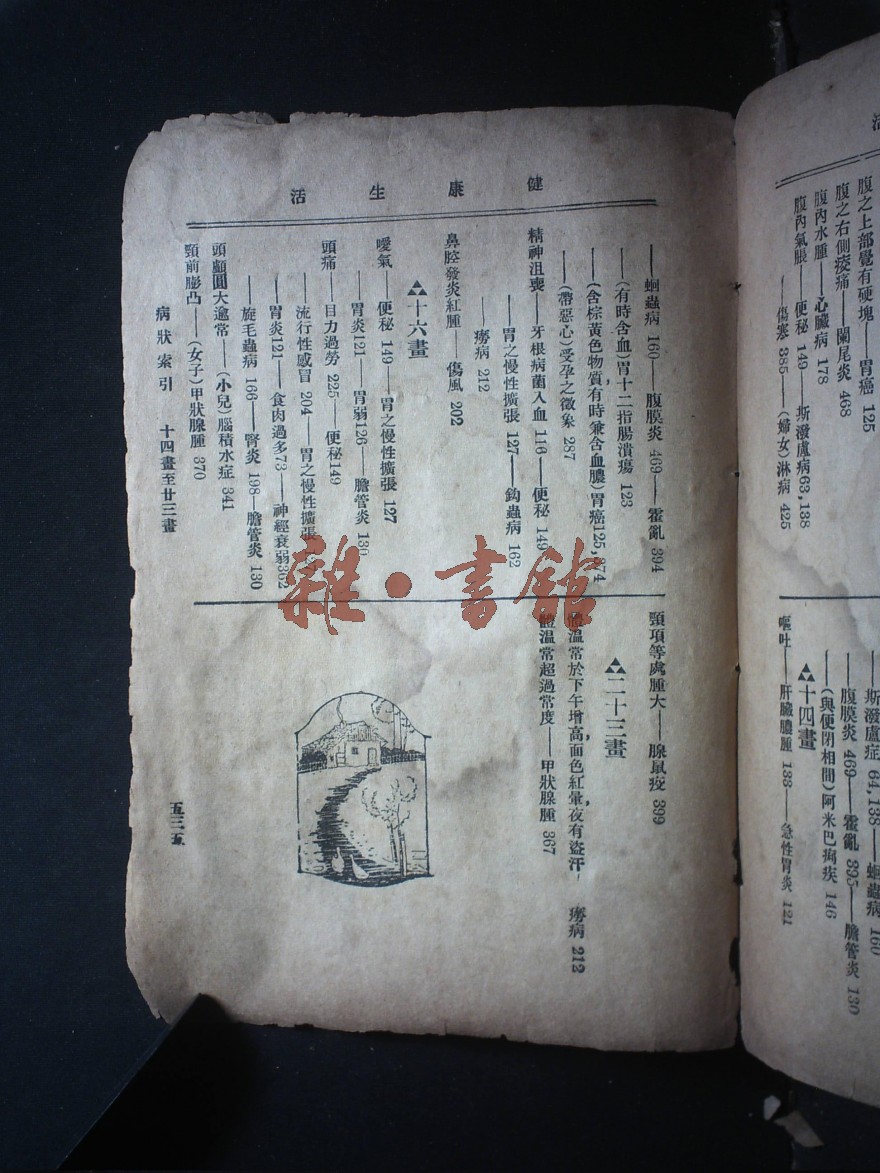 腹之上部覺有硬塊——胃癌 125
腹之右側痠痛——闌尾炎 468
腹內水腫——心臟病 178
腹內氣脹——便秘 149——斯潑盧病63,138
——傷寒 385——(婦女)淋病 425
——斯潑盧症 64,138——蛔蟲病 160
——腹膜炎 469——霍亂 395——膽管炎 130
——(與便閉相間)阿米巴痢疾 146
▲十四畫
嘔吐——肝臟膿腫 133——急性胃炎 121
健康生活
——蛔蟲病 160——腹膜炎 469——霍亂 394
——(有時含血)胃十二指腸潰瘍 123
——(含棕黃色物質,有時兼含血膿)胃癌125,374
——(帶惡心)受孕之徵象 287
精神沮喪——牙根病菌入血 116——便秘 149
——胃之慢性擴張 127——鈎蟲病 162
——癆病 212
鼻腔發炎紅腫——傷風 202
▲十六畫
噯氣——便秘 149——胃之慢性擴張 127
——胃炎121——胃弱126——膽管炎 130
頭痛——目力過勞 225——便秘149
——流行性感冒 204——胃之慢性擴張
——胃炎121——食肉過多73——神經衰弱362
——旋毛蟲病 166——腎炎 198——膽管炎 130
頭顱圓大逾常——(小兒)腦積水症 341
頸前膨凸——(女子)甲狀腺腫 370
頸項等處腫大——腺鼠疫 399
▲二十三畫
體溫常於下午增高,面色紅暈,夜有盜汗——癆病 212
體溫常超過常度——甲狀腺腫 367
病狀索引 十四畫至廿三畫
五三五
雜·書館